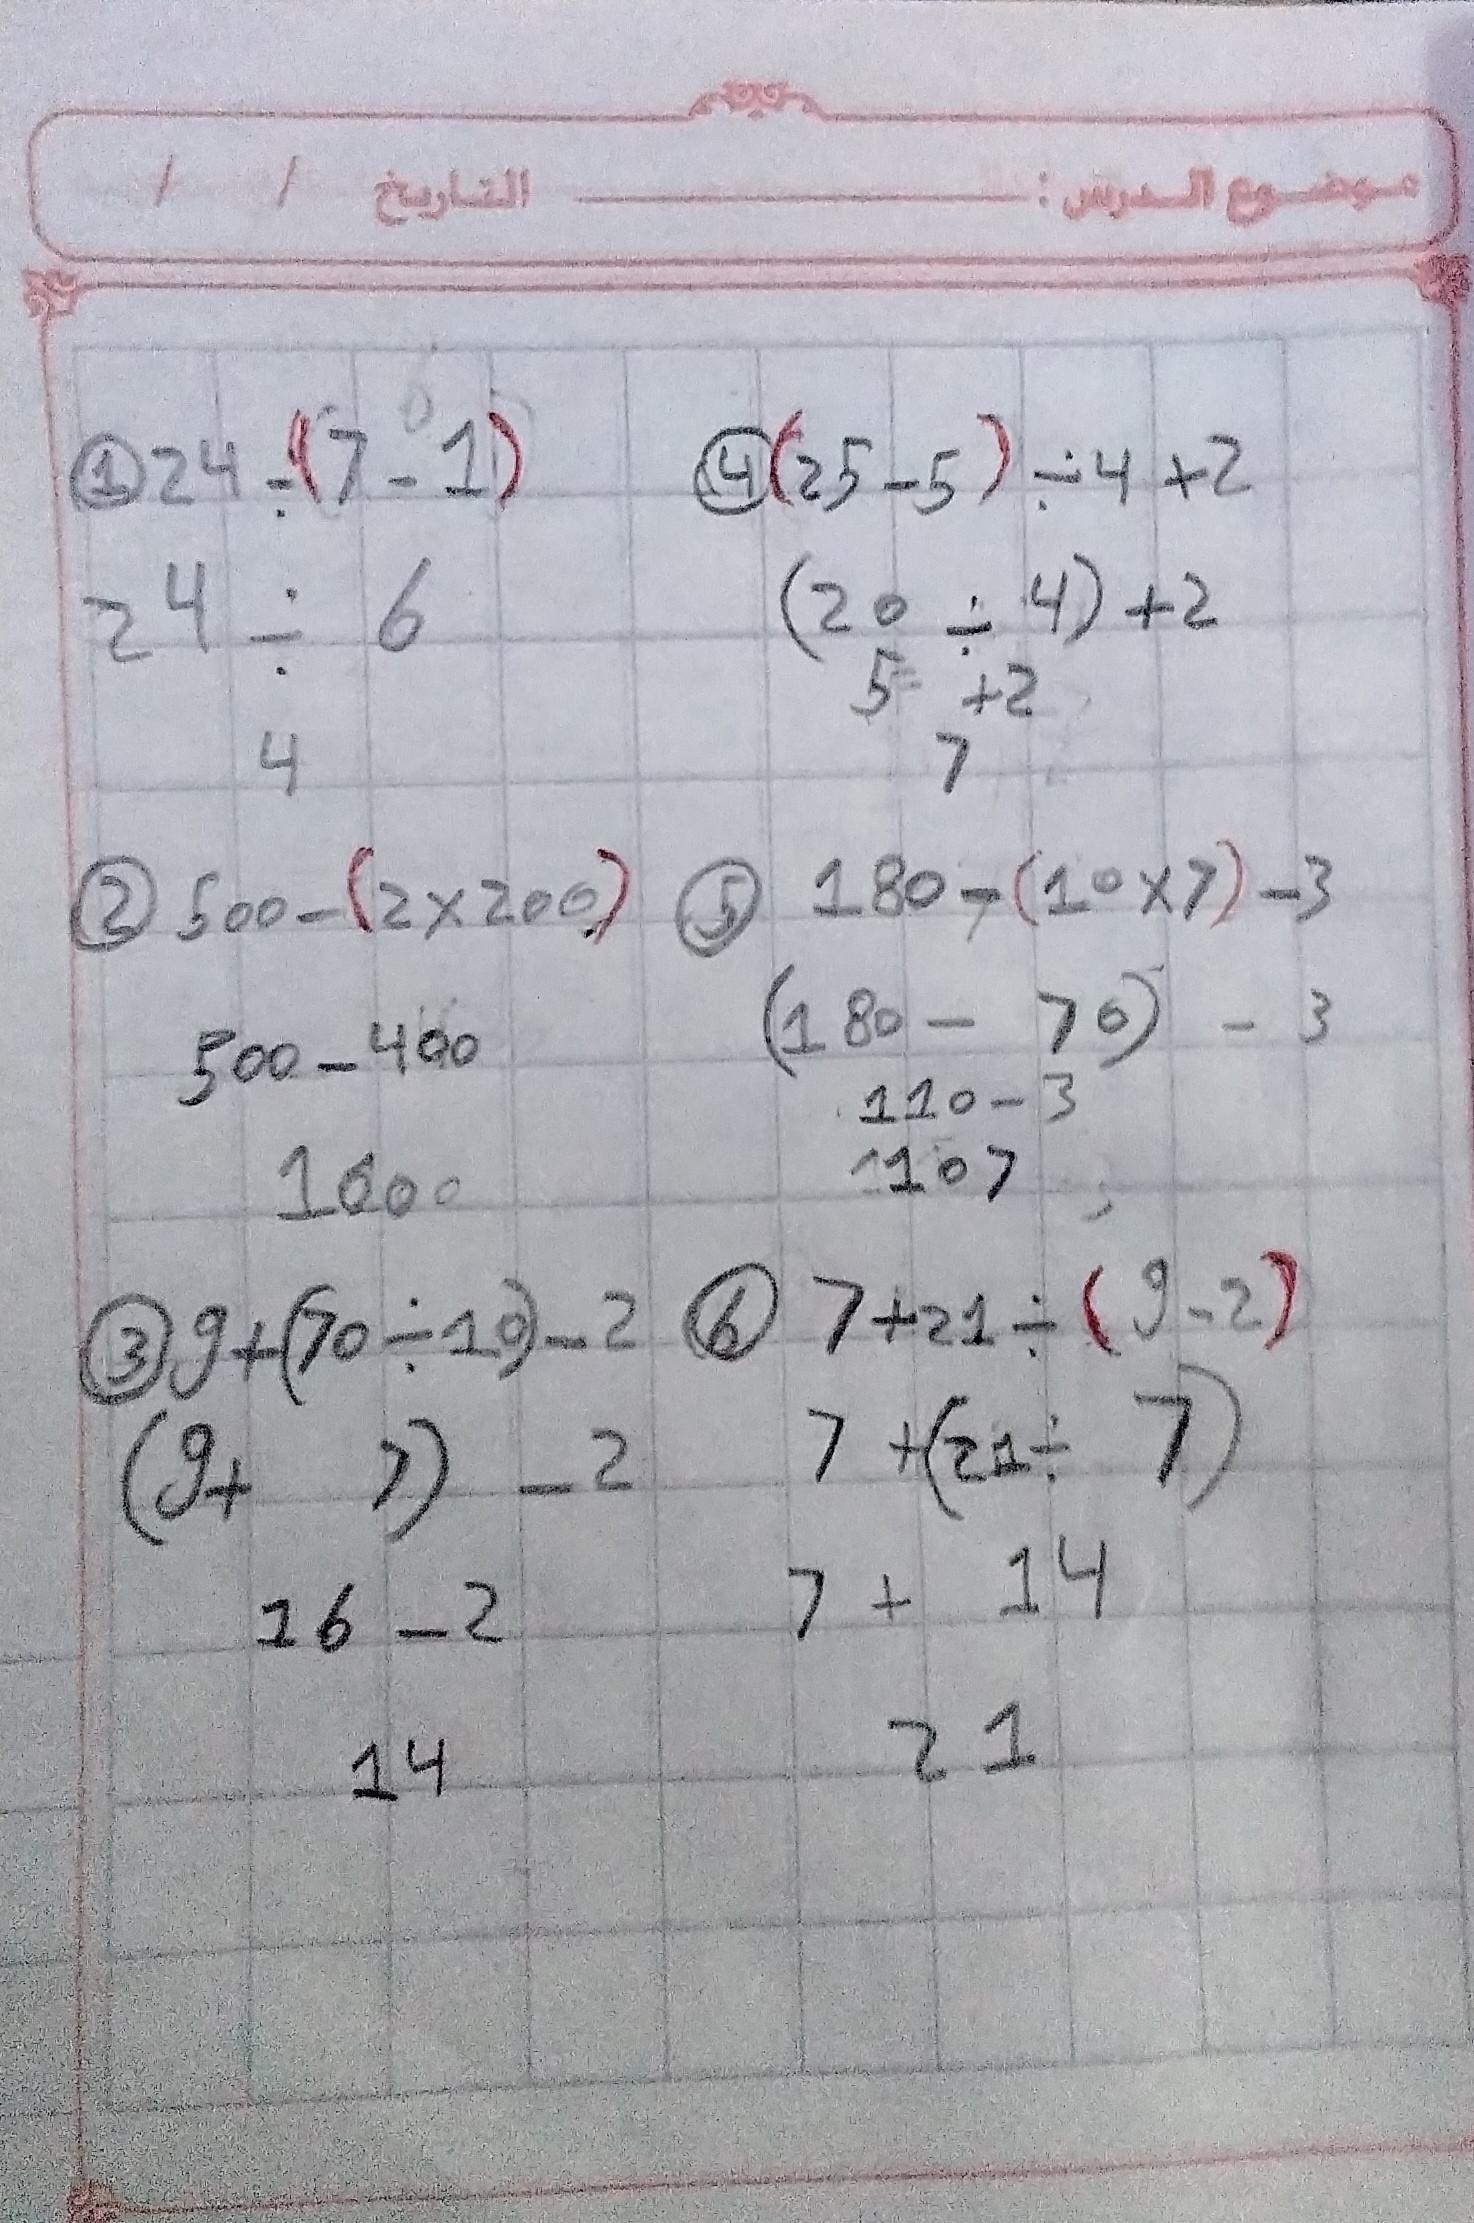 موضوع الدرس : التاريخ / /
① 24 ÷ (7 - 1)
24 ÷ 6
4
② 500 - (2 × 200)
500 - 400
1000
③ 9 + (70 ÷ 10) - 2
(9 + 7) - 2
16 - 2
14
④ (25 - 5) ÷ 4 + 2
(20 ÷ 4) + 2
5 + 2
7
⑤ 180 - (10 × 7) - 3
(180 - 70) - 3
110 - 3
107
⑥ 7 + 21 ÷ (9 - 2)
7 + (21 ÷ 7)
7 + 14
21